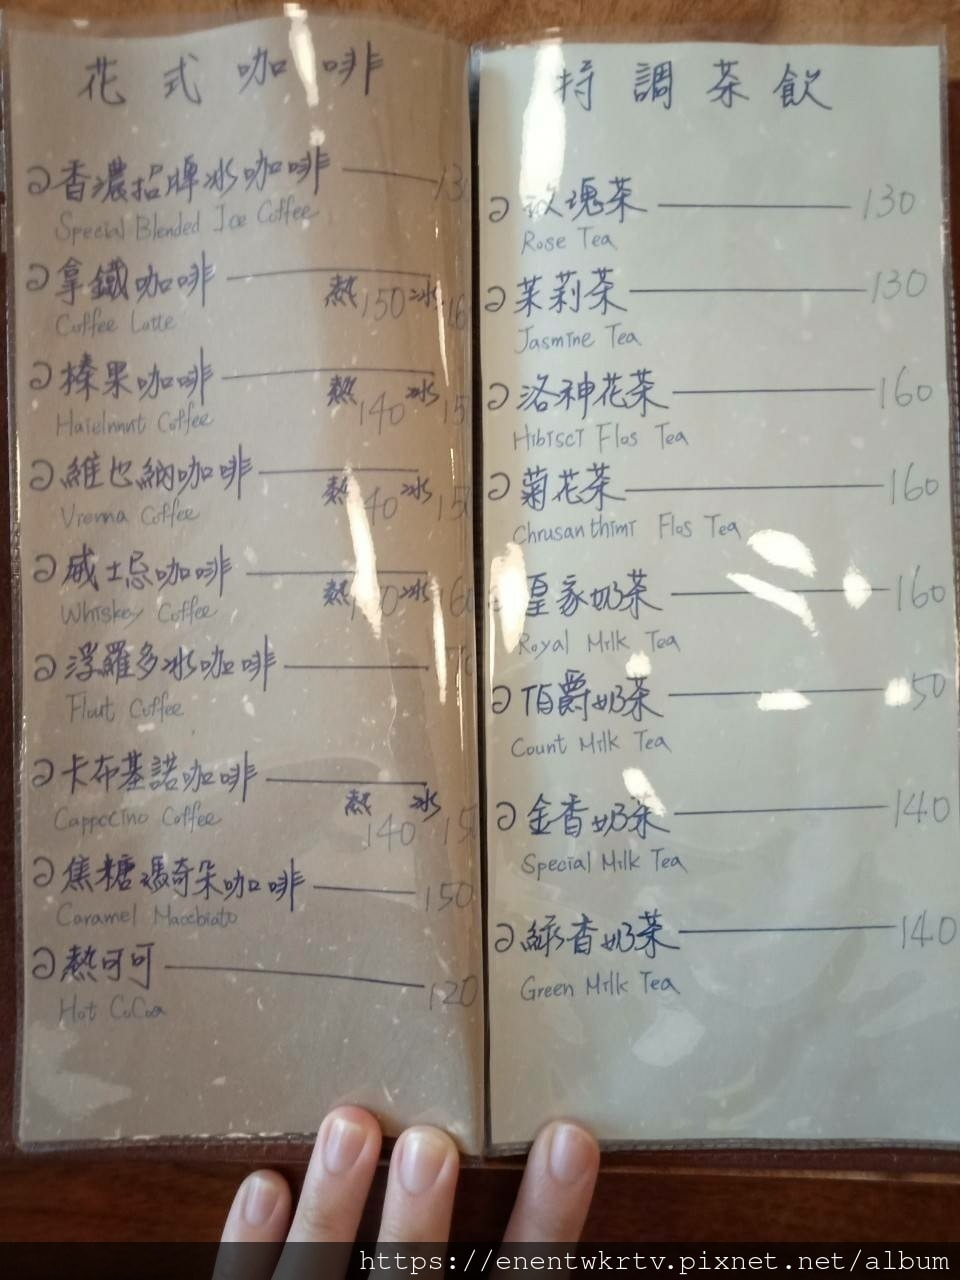 花式咖啡
香濃招牌冰咖啡
Special Blended Ice Coffee
拿鐵咖啡
熱150 冰
Coffee Latte
榛果咖啡
熱140 冰15
Hazelnnut Coffee
維也納咖啡
熱 40 冰15
Vienna Coffee
威士忌咖啡
熱 冰
Whiskey Coffee
浮羅多冰咖啡
Flout Coffee
卡布基諾咖啡
熱140 冰15
Cappccino Coffee
焦糖瑪奇朵咖啡 150
Caramel Macchiato
熱可可 120
Hot CoCoa
特調茶飲
玫瑰茶 130
Rose Tea
茉莉茶 130
Jasmine Tea
洛神花茶 160
Hibisci Flos Tea
菊花茶 160
Chrusanthimi Flos Tea
皇家奶茶 160
Royal Milk Tea
伯爵奶茶 50
Count Milk Tea
金香奶茶 140
Special Milk Tea
綠香奶茶 140
Green Milk Tea
https://enentwkrtv.pixnet.net/album